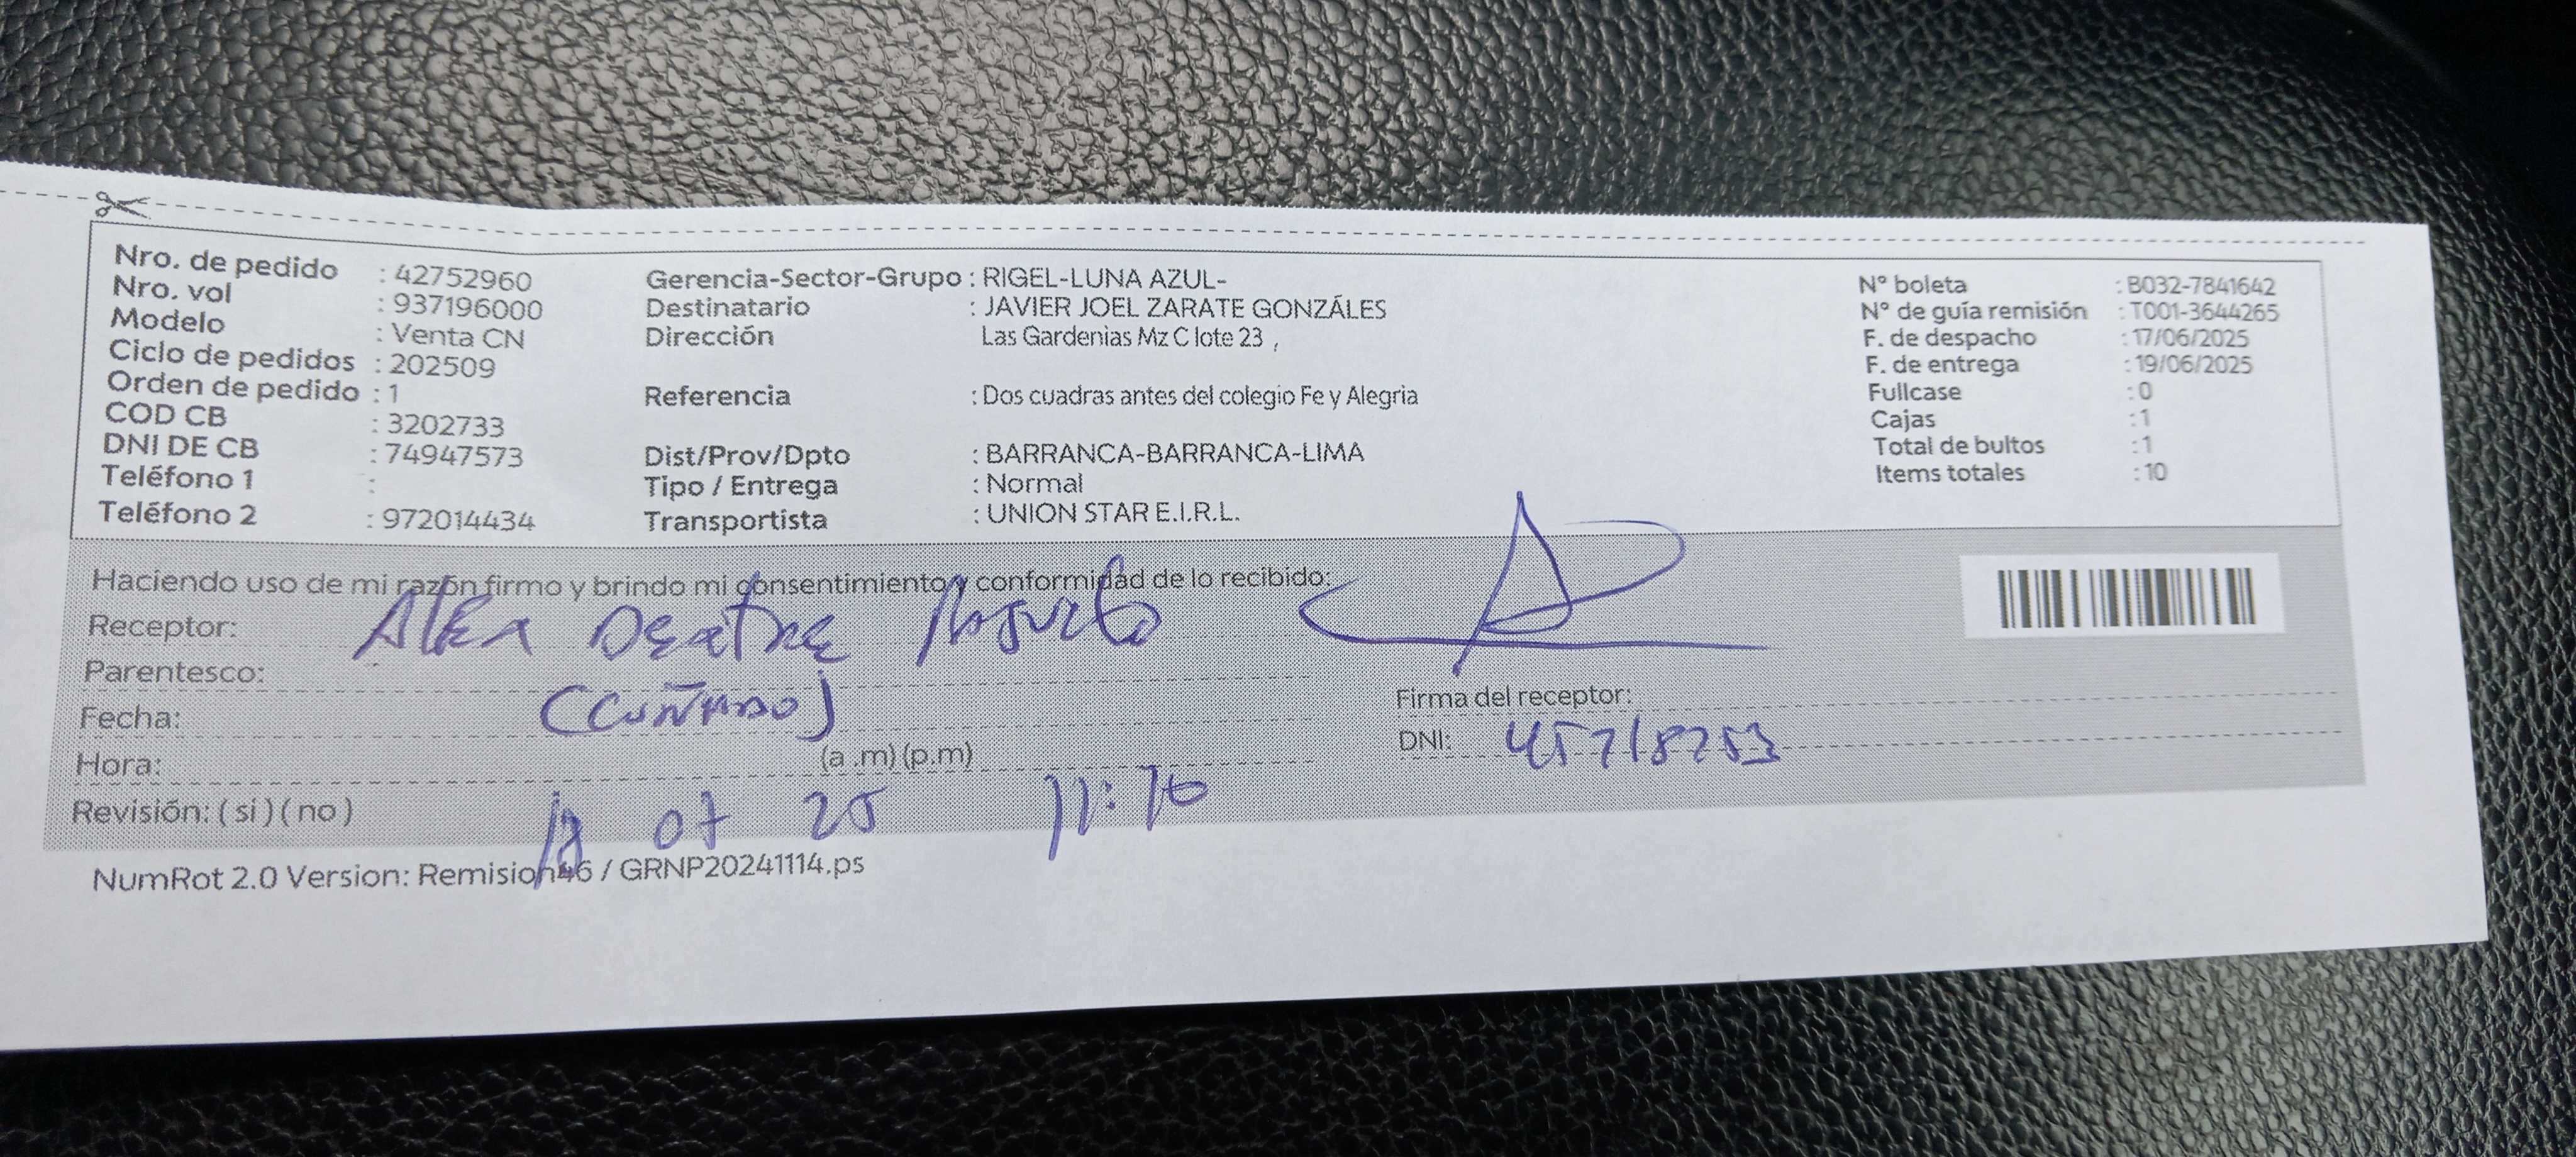 Nro. de pedido : 42752960
Nro. vol : 937196000
Modelo : Venta CN
Ciclo de pedidos : 202509
Orden de pedido : 1
COD CB : 3202733
DNI DE CB : 74947573
Teléfono 1 :
Teléfono 2 : 972014434
Gerencia-Sector-Grupo : RIGEL-LUNA AZUL-
Destinatario : JAVIER JOEL ZARATE GONZÁLES
Dirección Las Gardenias Mz C lote 23 ,
Referencia : Dos cuadras antes del colegio Fe y Alegria
Dist/Prov/Dpto : BARRANCA-BARRANCA-LIMA
Tipo / Entrega : Normal
Transportista : UNION STAR E.I.R.L.
N° boleta : B032-7841642
N° de guía remisión : T001-3644265
F. de despacho : 17/06/2025
F. de entrega : 19/06/2025
Fullcase : 0
Cajas : 1
Total de bultos : 1
Items totales : 10
Haciendo uso de mi razón firmo y brindo mi consentimiento y conformidad de lo recibido:
Receptor: Alex
Parentesco: (CUÑADO)
Fecha:
Hora: (a .m) (p.m)
Revisión: ( si ) ( no )
07 25
Firma del receptor:
DNI:
NumRot 2.0 Version: Remision46 / GRNP20241114.ps